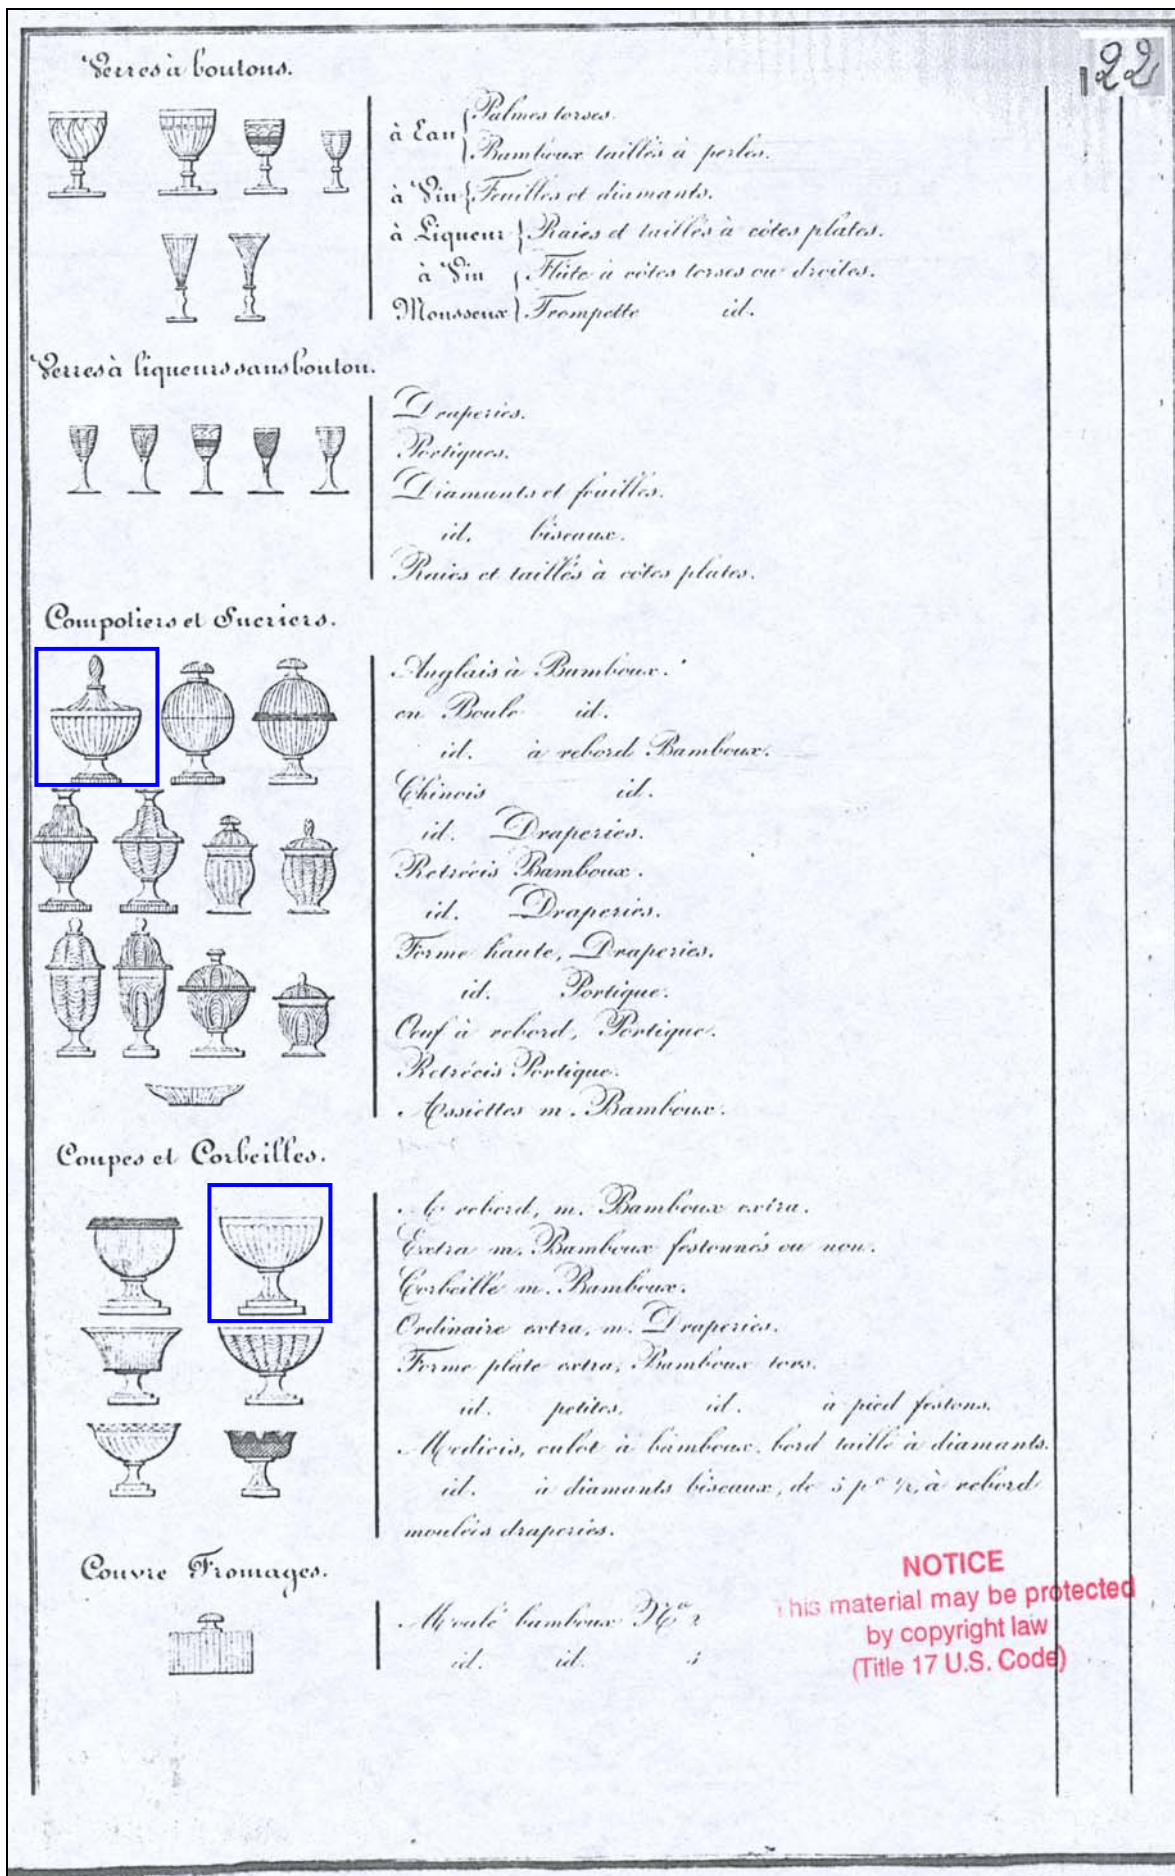 122
Verres à boutons.
à Eau { Palmes torses.
Bamboux taillés à perles.
à Vin { Feuilles et diamants.
à Liqueur { Raies et taillés à côtes plates.
à Vin { Flûte à côtes torses ou droites.
Mousseux { Trompette id.
Verres à liqueurs sans bouton.
Draperies.
Portiques.
Diamants et feuilles.
id. biseaux.
Raies et taillés à côtes plates.
Compotiers et Sucriers.
Anglais à Bamboux.
en Boule id.
id. à rebord Bamboux.
Chinois id.
id. Draperies.
Retrécis Bamboux.
id. Draperies.
Forme haute, Draperies.
id. Portique.
Oeuf à rebord, Portique.
Retrécis Portique.
Assiettes m. Bamboux.
Coupes et Corbeilles.
A rebord, m. Bamboux extra.
Extra m. Bamboux festonnés ou non.
Corbeille m. Bamboux.
Ordinaire extra, m. Draperies.
Forme plate extra, Bamboux tors.
id. petites, id. à pied festons.
Medicis, culot à bamboux, bord taillé à diamants.
id. à diamants biseaux, de 5 pº ½, à rebord
moulés draperies.
Couvre Fromages.
Moulé bamboux Nº 2
id. id. 3
NOTICE
This material may be protected
by copyright law
(Title 17 U.S. Code)